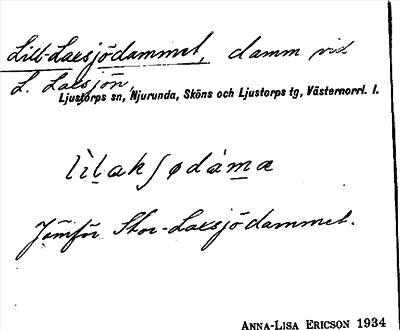 Lill-Laxsjödammet, damm vid
L. Laxsjön,
Ljustorps sn, Njurunda, Sköns och Ljustorps tg, Västernorrl. l.
lìlaksʃødàmə
Jämför Stor-Laxsjödammet.
ANNA-LISA ERICSON 1934